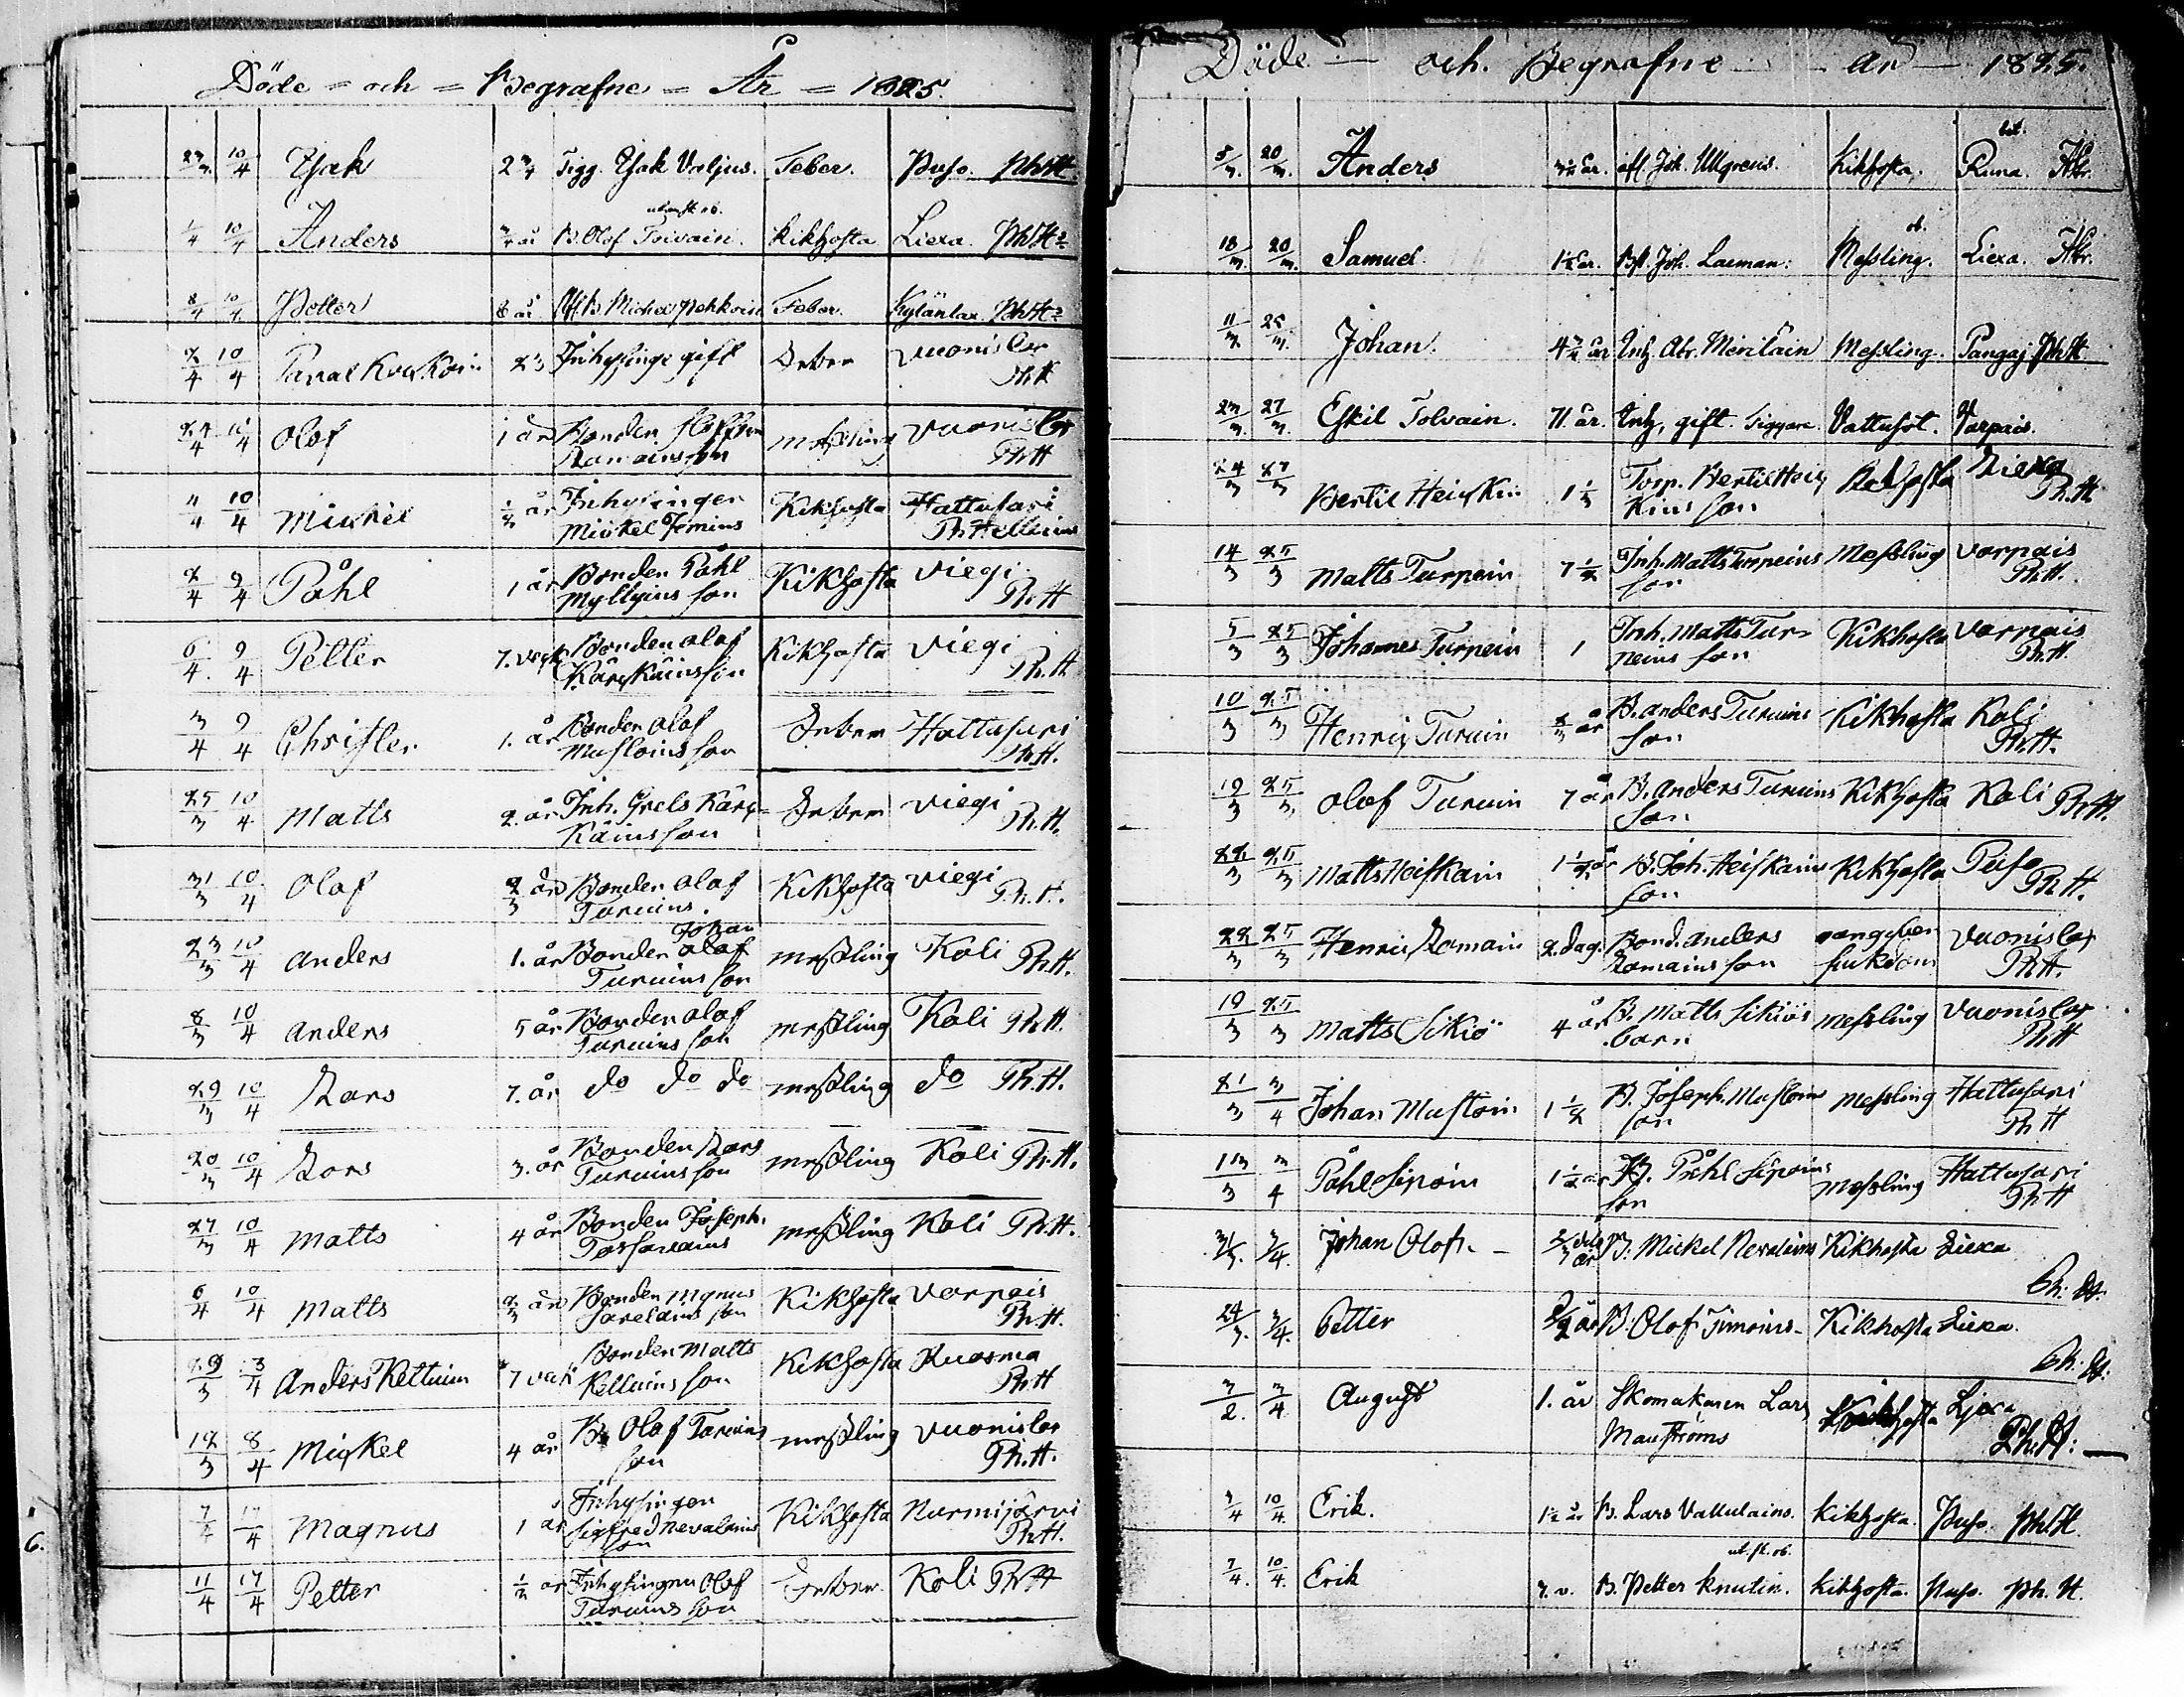 Döde = och = Begrafne = År = 1825.
10/4 Isak Tigg. Isak Valjus. Feber. Puso. Ph.H.
1/4 10/4 Anders 3/4 år B. Olof Toivain. Kikhosta Liexa. Ph.H.
8/4 10/4 Petter 8 år Michel Feber. Kylänlax. Ph.H.
2/4 10/4 Inhysinge gift Feber Vuonislax
Ph.H
4 10/4 Olof 1 år Bonden
Ramains son messling Vuonislax
Ph.H
11/4 10/4 Mickel 1/2 år Inhysingen
Mickel Kikhosta Hattusari
Ph. Hellenius
2/4 9/4 Påhl 1 år Bonden Påhl
Myllyins son Kikhosta Viegi
Ph.H
6/4 9/4 Petter 7. veck Bonden Olof
Kärckäins son Kikhosta Viegi
Ph.H
3/4 9/4 Christer 1. år Bonden Olof
Mustoins son Feber Hattusari
Ph.H.
25/3 10/4 Matts 2. år Inh. Grels Kärc-
käins son Feber Viegi
Ph.H.
31/3 10/4 Olof 2/3 år Bonden Olof
Turuins. Kikhosta Viegi
Ph.H.
23/3 10/4 Anders 1. år Bonden Johan
Turuins son messling Koli Ph.H.
8/3 10/4 Anders 5 år Bonden Olof
Turuins son messling Koli Ph.H.
29/3 10/4 Lars 7. år do do do messling do Ph.H.
20/3 10/4 Lars 3. år Bonden Lars
Turuins son messling Koli Ph.H.
27/3 10/4 Matts 4 år Bonden Joseph.
messling Koli Ph.H.
6/4 10/4 Matts 2/3 år Bonden Magnus
son Kikhosta Varpais
Ph.H.
29/3 3/4 Anders Kettuin 7 veck Bonden Matts
Kettuins son Kikhosta Kuorma
Ph.H
12/3 8/4 Mickel 4 år B. Olof Turuins
son messling Vuonislax
Ph.H.
7/4 17/4 Magnus 1 år Inhysingen
Sigfred Nevalains
son Kikhosta Nurmijärvi
Ph.H.
11/4 17/4 Petter 1/2 år Inhysingen Olof
Turuins son Feber Koli Ph.H
6.
Döde — och. Begrafne — år — 1825.
5/3. 20/3. Anders afl. Joh. Ullgrens. Kikhosta. Runa.
18/3. 20/3. Samuel 1 1/2 år. Joh. Laeman. Messling. Liexa.
11/3. 25/3. Johan. Inh. Abr. Meriläin Messling. Pangaj. Ph.H.
23/3. 27/3. Eskil Tolvain. 71. år. Inh. gift. Tiggare. Vattusot. Varpais.
24/3 27/3 Bertil Heickin 1 1/3 Torp. Bertil Heic-
kins son Kikhosta Liexa
Ph.H
14/3 25/3 Matts Turpein 7 1/2 Inh. Matts Turpeins
son Messling Varpais
Ph.H.
5/3 25/3 Johannes Turpein 1 Inh. Matts Tur-
peins son Kikhosta Varpais
Ph.H.
10/3 25/3 Henric Turuin 2/3 år B. Anders Turuins
son Kikhosta Koli
Ph.H.
19/3 25/3 Olof Turuin 7 år B. Anders Turuins
son Kikhosta Koli Ph.H.
22/3 25/3 Matts Heiskain 1 1/2 år B. Joh. Heiskains
son Kikhosta Puso
Ph.H.
22/3 25/3 Henric Ramain 2. dag. Bond. Anders
Ramains son oangifven
sjukdom Vuonislax
Ph.H.
19/3 25/3 Matts Sikiö 4 år B. Matts Sikiös
barn messling Vuonislax
Ph.H
21/3 3/4 Johan Mustoin 1 1/2 B. Joseph Mustoins
son messling Hattusari
Ph.H
13/3 3/4 Påhl Sipoin 1 1/2 år B. Påhl Sipoins
son messling Hattusari
Ph.H
31/3. 3/4. Johan Olof. — B. Mickel Nevalains Kikhosta Liexa
Ph. H.
24/3. 3/4. Petter B. Olof Timoins — Kikhosta Liexa.
Ph. H.
3/2. 3/4 August 1. år Skomakaren Lars
Kikhosta Ljexa
Ph.H: —
3/4 10/4 Erik. 1 1/2 år B. Lars Vattulains. Kikhosta. Puso. Ph.H.
7/4. 10/4. Erik 3. v. B. Petter Knutin. Kikhosta. Puso. Ph. H.